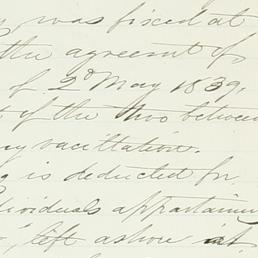 was fixed at
the agreemt of
of 2d May 1839,
of the two between
vacillation.
is deducted for
dividuals appertainin
left ashore at